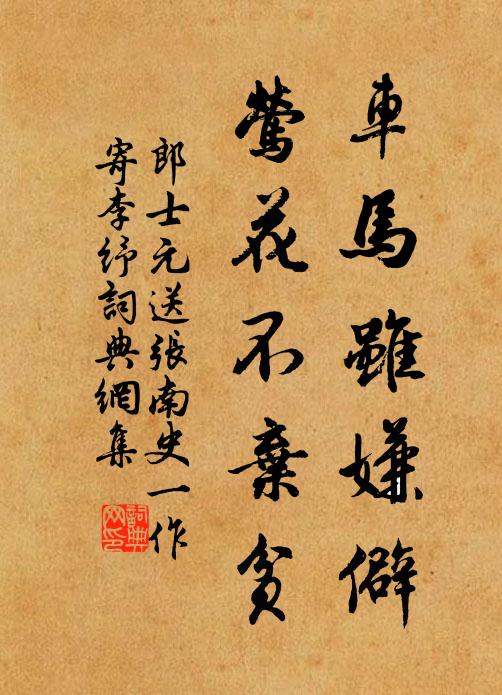 車馬雖嫌僻
鶯花不棄貧
郎士元送張南史一作
寄李紓詞典網集
詞典網印